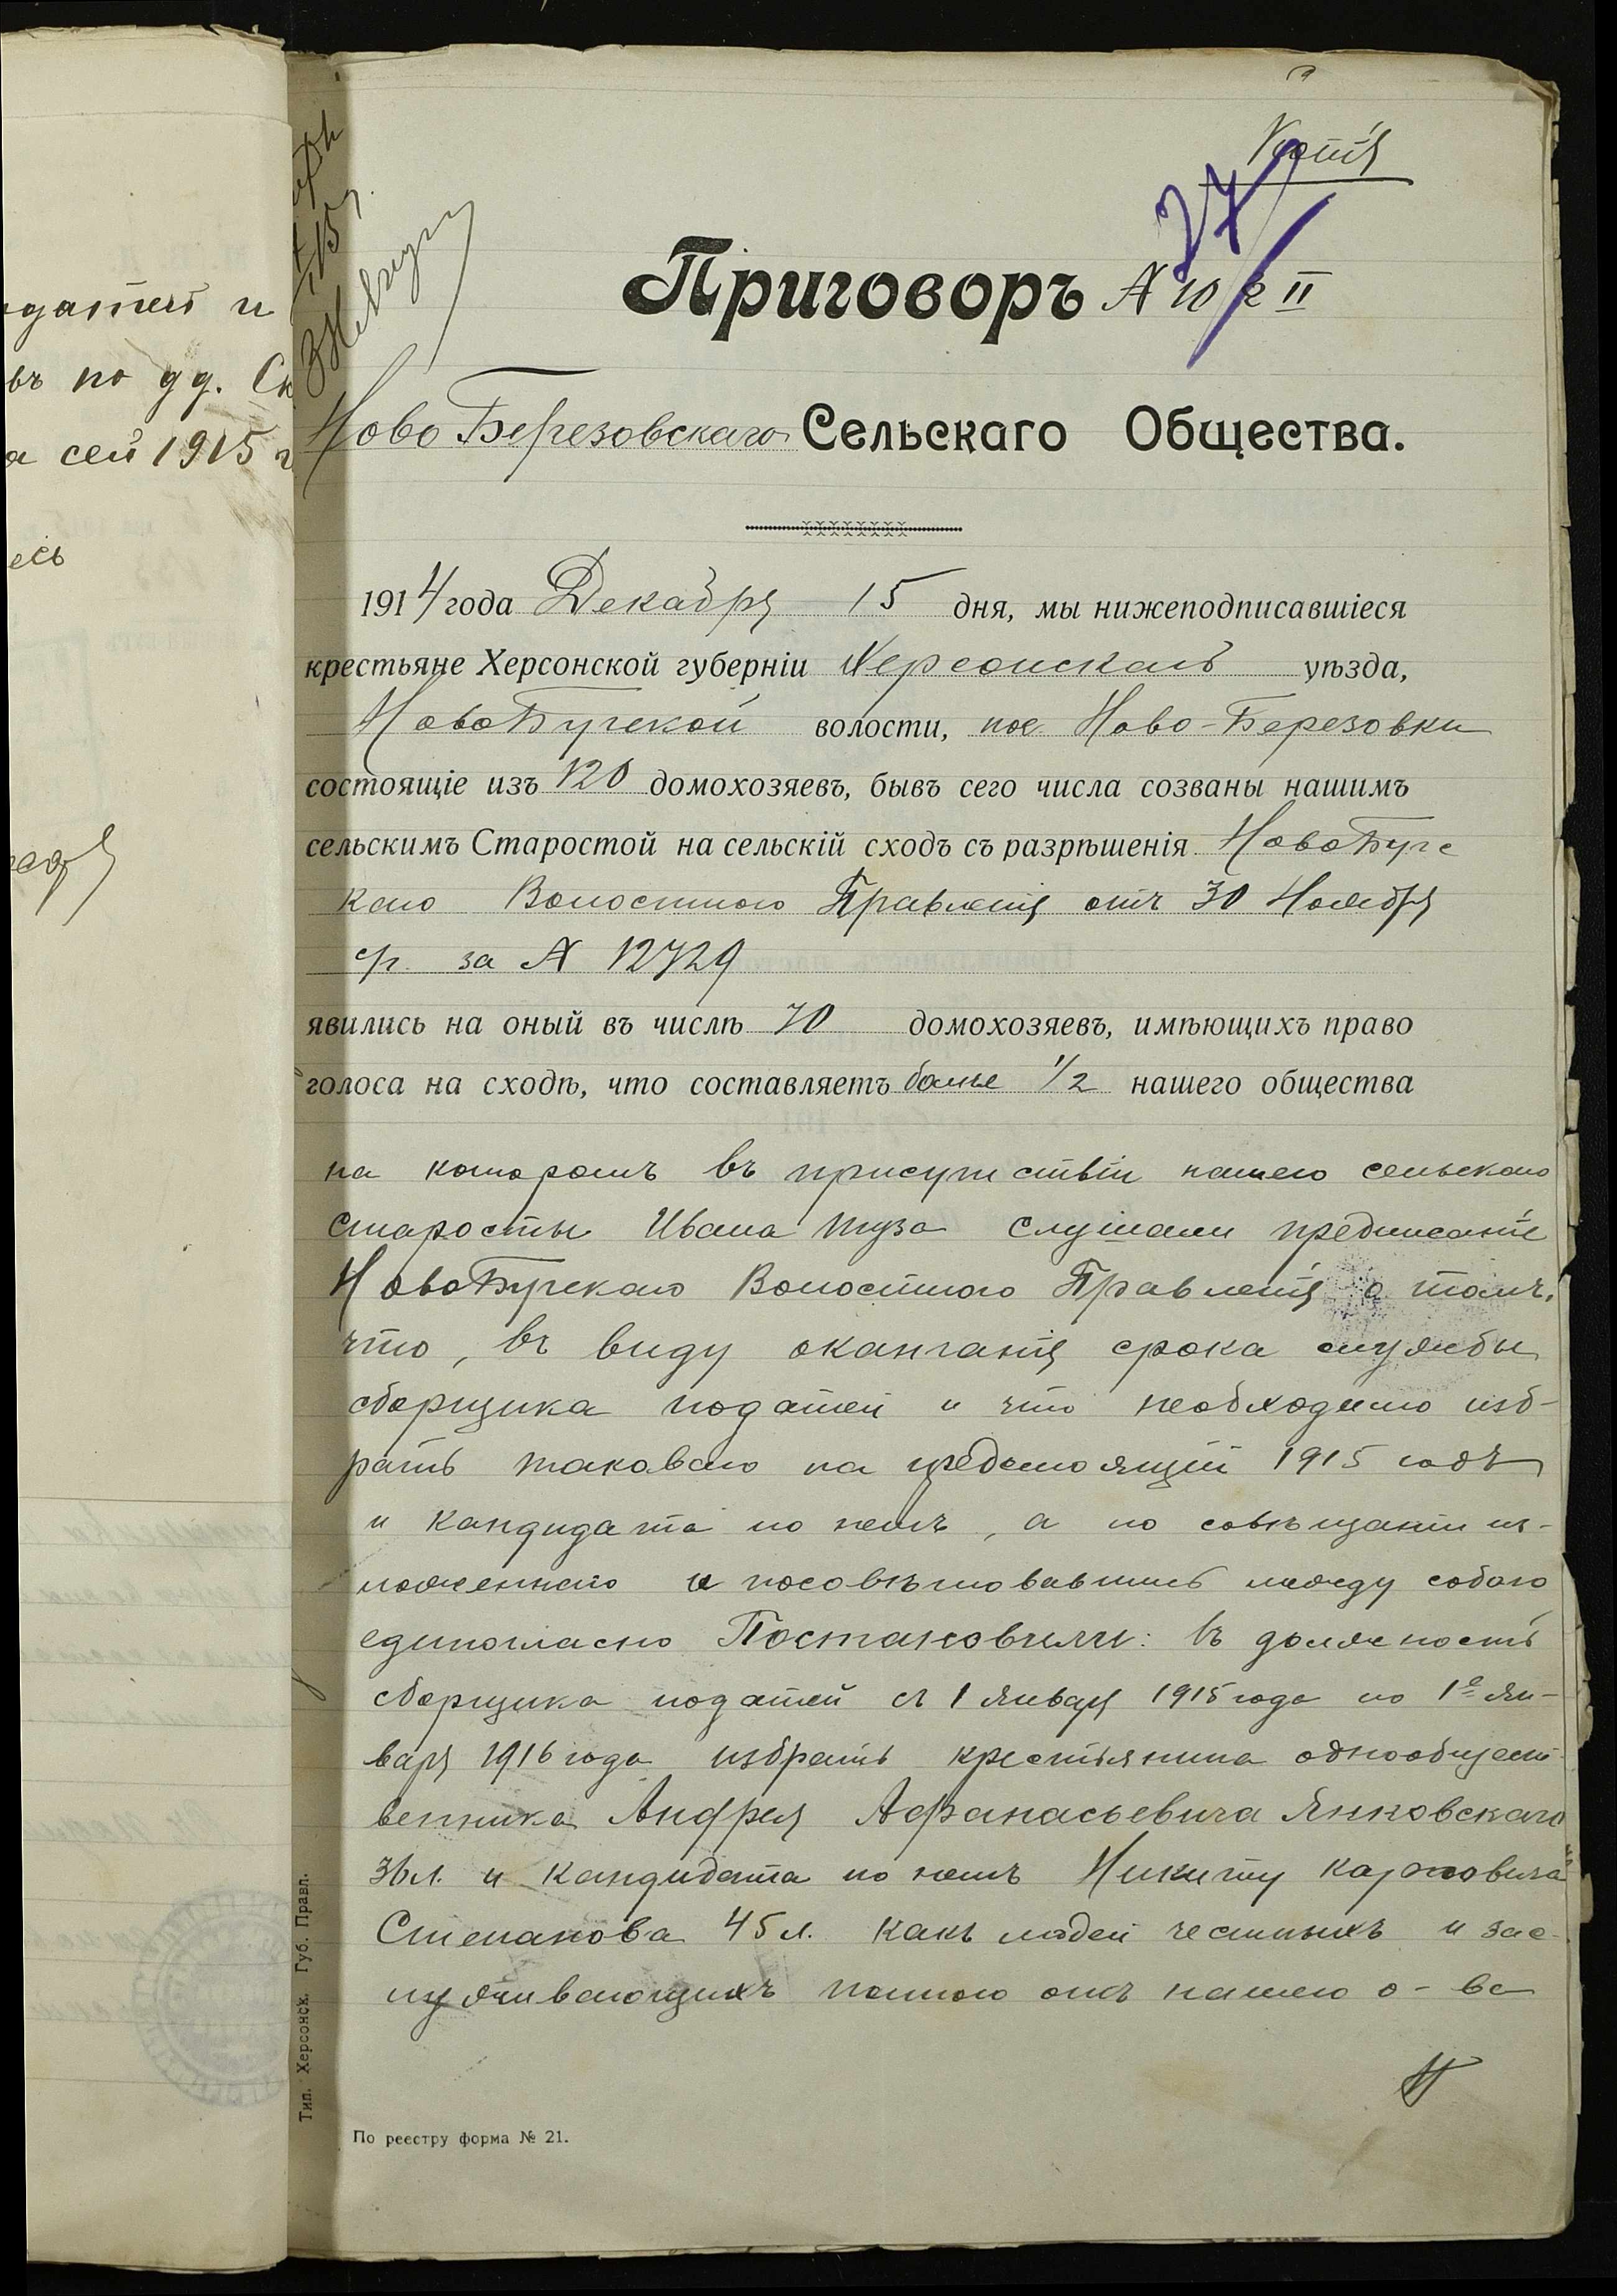 Копія
27
Приговоръ № 10/2 II
Ново Березовскаго Сельскаго Общества.
1914 года Декабря 15 дня, мы нижеподписавшіеся
крестьяне Херсонской губерніи Херсонскаго уѣзда,
НовоБугской волости, пос. Ново-Березовки
состоящіе изъ 120 домохозяевъ, бывъ сего числа созваны нашимъ
сельскимъ Старостой на сельскій сходъ съ разрѣшенія НовоБугс
каго Волостного Правленія отъ 30 Ноября
с/г. за № 12729
явились на оный въ числѣ 70 домохозяевъ, имѣющихъ право
голоса на сходѣ, что составляетъ болѣе 1/2 нашего общества
на которомъ въ присутствіи нашего сельскаго
старосты Ивана Туза слушали предписаніе
НовоБугскаго Волостного Правленія о томъ,
что, въ виду окончанія срока службы
сборщика податей и что необходимо изб-
рать таковаго на предстоящій 1915 годъ
и кандидата по немъ, а по совѣщаніи из-
ложеннаго и посовѣтовавшись между собою
единогласно Постановили: въ должность
сборщика податей съ 1 Января 1915 года по 1е Ян-
варя 1916 года избрать крестьянина однообщест-
венника Андрея Афанасьевича Янковскаго
36 л. и кандидата по немъ Никиту Карповича
Степанова 45 л. какъ людей честныхъ и зас-
луживающихъ полного отъ нашего о-ва
По реестру форма № 21.
Тип. Херсонск. Губ. Правл.
датей и
въ по дд. Ск
а сей 1915 г
есь